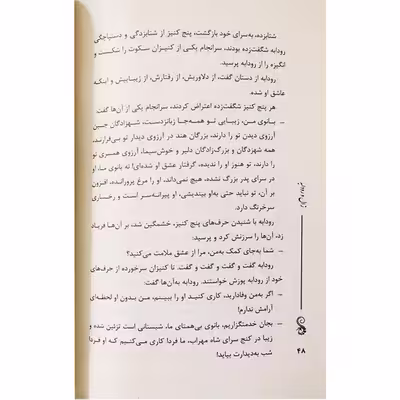 شتابزده، به‌سرای خود بازگشت، پنج کنیز از شتابزدگی و دستپاچگی
رودابه شگفت‌زده بودند، سرانجام یکی از کنیزان سکوت را شکست و
انگیزه را از رودابه پرسید.
رودابه از دستان گفت، از دلاوریش، از رفتارش، از زیباییش و اینکه
عاشق او شده.
هر پنج کنیز شگفت‌زده اعتراض کردند، سرانجام یکی از آن‌ها گفت:
ـ بانوی من، زیبایی تو همه‌جا زبانزدست، شهزادگان چین
آرزوی دیدن تو را دارند، بزرگان هند در آرزوی دیدار تو بی‌قرارند،
همه شهزدگان و بزرگ‌زادگان دلیر و خوش‌سیما، آرزوی همسری تو
را دارند، تو هنوز او را ندیده، گرفتار عشق او شده‌ای! نه بانوی ما، او
در سرای پدر بزرگ نشده، هیچ نمی‌داند، او را مرغ پرورانده، افزون
بر آن، تو نباید حتی به‌او بیندیشی، او پیرانه‌سر است و رخساری
سرخرنگ دارد.
رودابه با شنیدن حرف‌های پنج کنیز، خشمگین شد، بر آن‌ها فریاد
زد، آن‌ها را سرزنش کرد و پرسید:
ـ شما به‌جای کمک به‌من، مرا از عشق ملامت می‌کنید؟
رودابه گفت و گفت و گفت. تا کنیزان سرخورده از حرف‌های
خود از رودابه پوزش خواستند. رودابه به‌آن‌ها گفت:
ـ اگر به‌من وفادارید، کاری کنید او را ببینم، من بدون او لحظه‌ای
آرامش ندارم!
ـ بجان خدمتگزاریم، بانوی بی‌همتای ما، شبستانی است تزئین شده و
زیبا در کنج سرای شاه مهراب، ما فردا کاری می‌کنیم که او فردا
شب به‌دیدارت بیاید!
زال و رودابه
۴۸